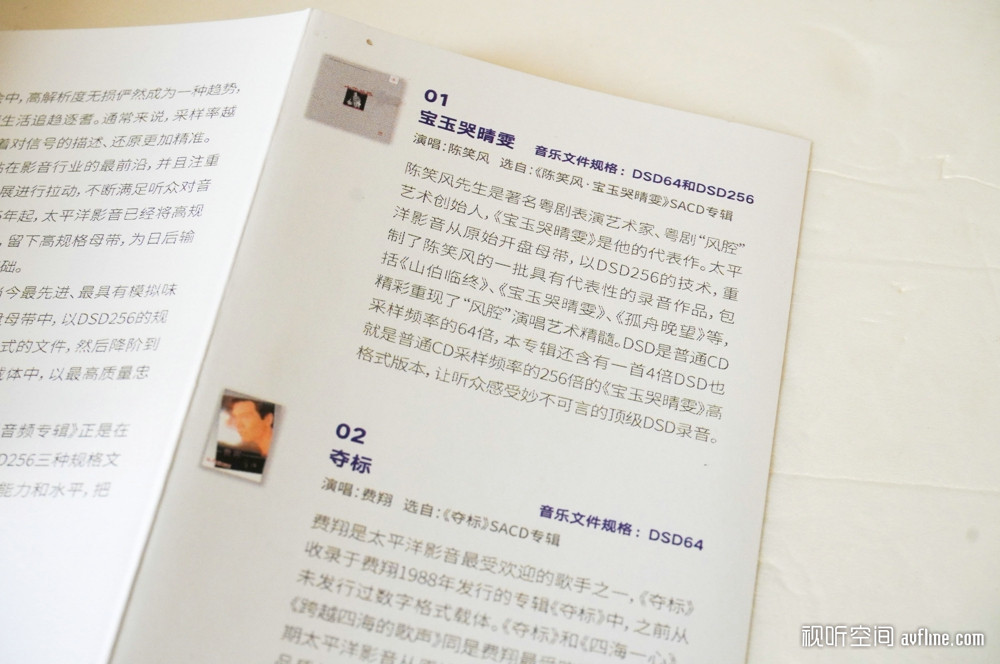 中,高解析度无损俨然成为一种趋势,
生活追趋逐耆。通常来说,采样率越
着对信号的描述、还原更加精准。
站在影音行业的最前沿,并且注重
展进行拉动,不断满足听众对音
年起,太平洋影音已经将高规
,留下高规格母带,为日后输
础。
当今最先进、最具有模拟味
母带中,以DSD256的规
式的文件,然后降阶到
载体中,以最高质量忠
音频专辑》正是在
D256三种规格文
能力和水平,把
01
宝玉哭晴雯
音乐文件规格:DSD64和DSD256
演唱:陈笑风 选自:《陈笑风·宝玉哭晴雯》SACD专辑
陈笑风先生是著名粤剧表演艺术家、粤剧“风腔”
艺术创始人,《宝玉哭晴雯》是他的代表作。太平
洋影音从原始开盘母带,以DSD256的技术,重
制了陈笑风的一批具有代表性的录音作品,包
括《山伯临终》、《宝玉哭晴雯》、《孤舟晚望》等,
精彩重现了“风腔”演唱艺术精髓。DSD是普通CD
采样频率的64倍,本专辑还含有一首4倍DSD也
就是普通CD采样频率的256倍的《宝玉哭晴雯》高
格式版本,让听众感受妙不可言的顶级DSD录音。
02
夺标
音乐文件规格:DSD64
演唱:费翔 选自:《夺标》SACD专辑
费翔是太平洋影音最受欢迎的歌手之一,《夺标》
收录于费翔1988年发行的专辑《夺标》中,之前从
未发行过数字格式载体。《夺标》和《四海一心》
《跨越四海的歌声》同是费翔最受
期太平洋影音从
视听空间 avfline.com